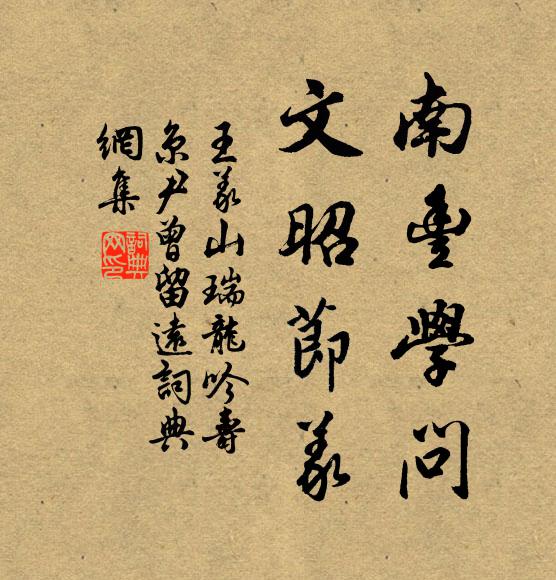 南豐學問
文昭節義
王義山瑞龍吟壽
京尹曾留遠詞典
網集
詞典
網印